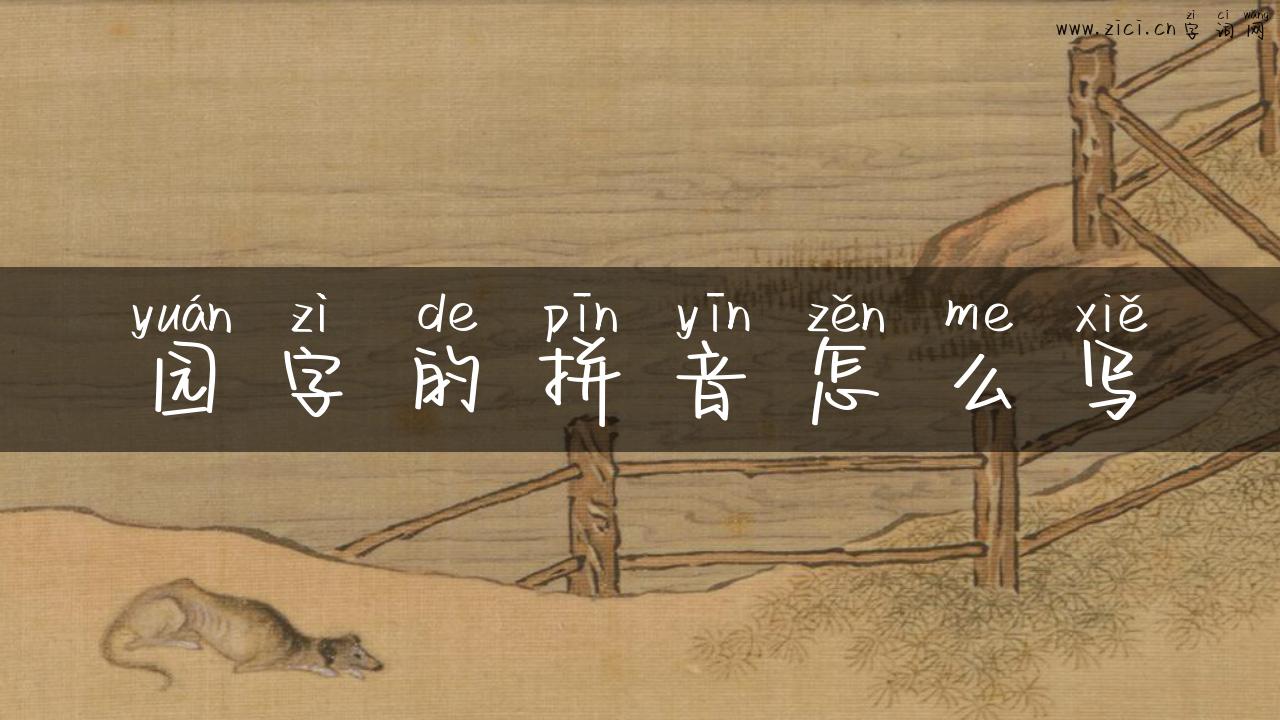 zì cí wǎng
www.zici.cn字词网
yuán zì de pīn yīn zěn me xiě
园字的拼音怎么写